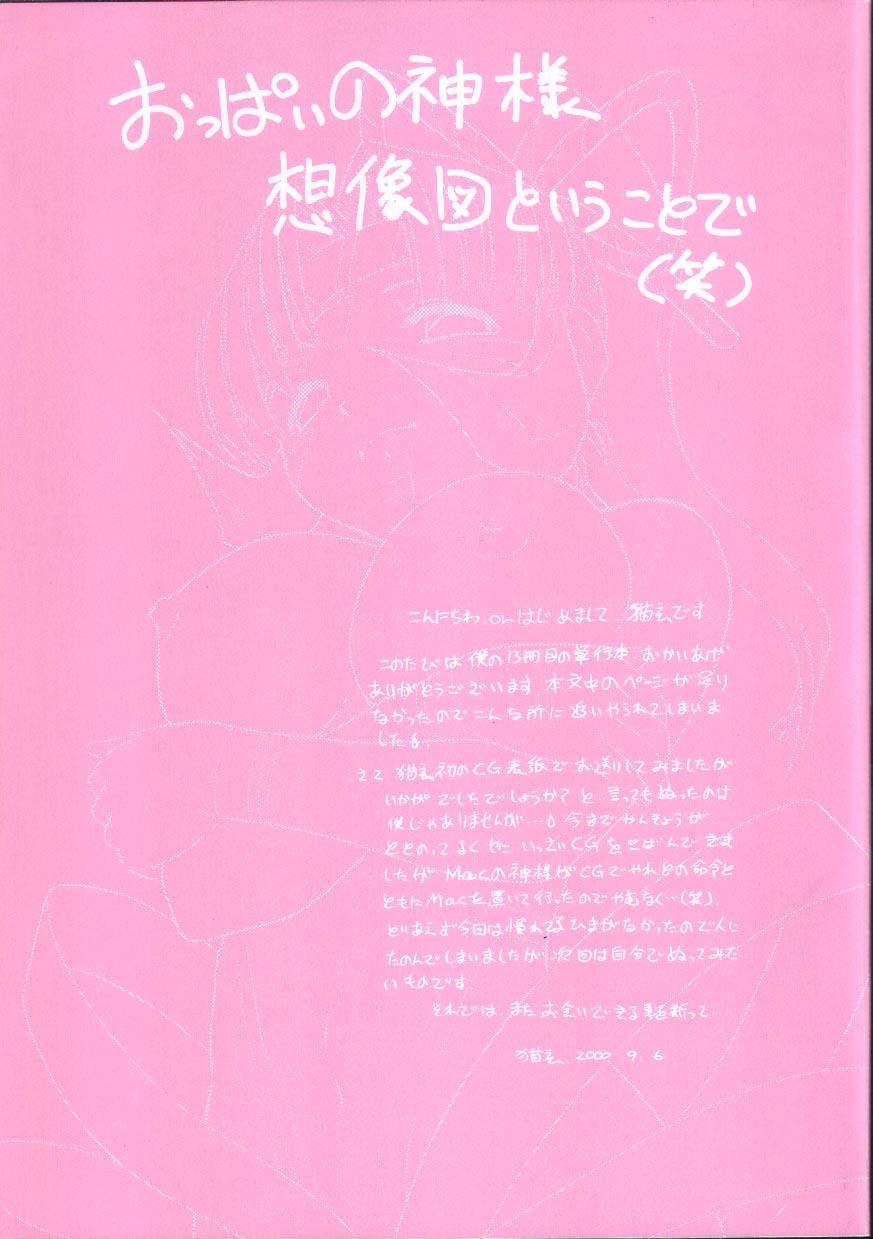 おっぱいの神様
想像図ということで
(笑)
こんにちわ、orはじめまして、猫玄です。
このたびは僕の13冊目の単行本おかいあげ
ありがとうございます。本文中のページが足り
なかったのでこんな所に追いやられてしまいま
した。
さて猫玄初のCG表紙でお送りしてみましたが
いかがでしたでしょうか？と、言ってもぬったのは
僕じゃありませんが…今までかんきょうが
ととのってるくせにいっさいCGをこばんできま
したが Macの神様がCGでやれとの命令と
ともにMacを置いて行ったのでやむなく…(笑)。
とりあえず今回は慣れてるひまがなかったので人に
たのんでしまいましたが次回は自分でぬってみた
いものです。
それでは、またお会いできる事を祈って…
猫玄 2000 9.6